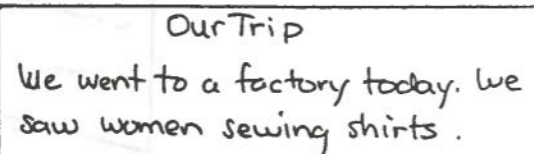 Our Trip
We went to a factory today. We
saw women sewing shirts.